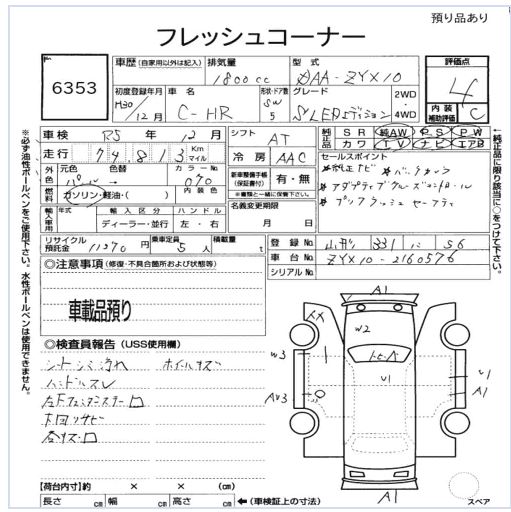 預り品あり
フレッシュコーナー
6353
車歴 (自家用以外は記入)
排気量
1800cc
型式
DAA-ZYX10
評価点
4
内装補助評価 C
初度登録年月
H30/12月
車名
C-HR
形状・ドア数
SW
5
グレード
S LEDエディション
2WD
4WD
車検 R5年12月
シフト AT
純正品
SR 純AW PS PW
カワ TV ナビ エアB
走行 74,813 Km マイル
冷房 AAC
セールスポイント
*純正ナビ *バックカメラ
*アダプティブクルーズコントロール
*プリクラッシュセーフティ
外色
元色 パール
色替
カラーNo. 070
燃料 ガソリン・軽油・( )
内装色
新車整備手帳(保証書付) 有・無
※書類と一緒に保管下さい。
輸入車用
年式
輸入区分
ディーラー・並行
ハンドル
左・右
名義変更期限
月 日
リサイクル預託金 11270円
乗車定員 5人
積載量 t
登録No. 山形 331 56
車台No. ZYX10-2160576
シリアルNo.
※必ず油性ボールペンをご使用下さい。水性ボールペンは使用できません。
←純正品に限り該当に○をつけて下さい。
◎注意事項 (修復・不具合箇所および状態等)
車載品預り
◎検査員報告 (USS使用欄)
シートシミ汚れ ホイールキズ
ハンドルスレ
下回りサビ
A1
XX
W2
W3
V1
AW3
V1
A1
A1
スペア
【荷台内寸】約 × × (cm)
長さ cm 幅 cm 高さ cm ←(車検証上の寸法)